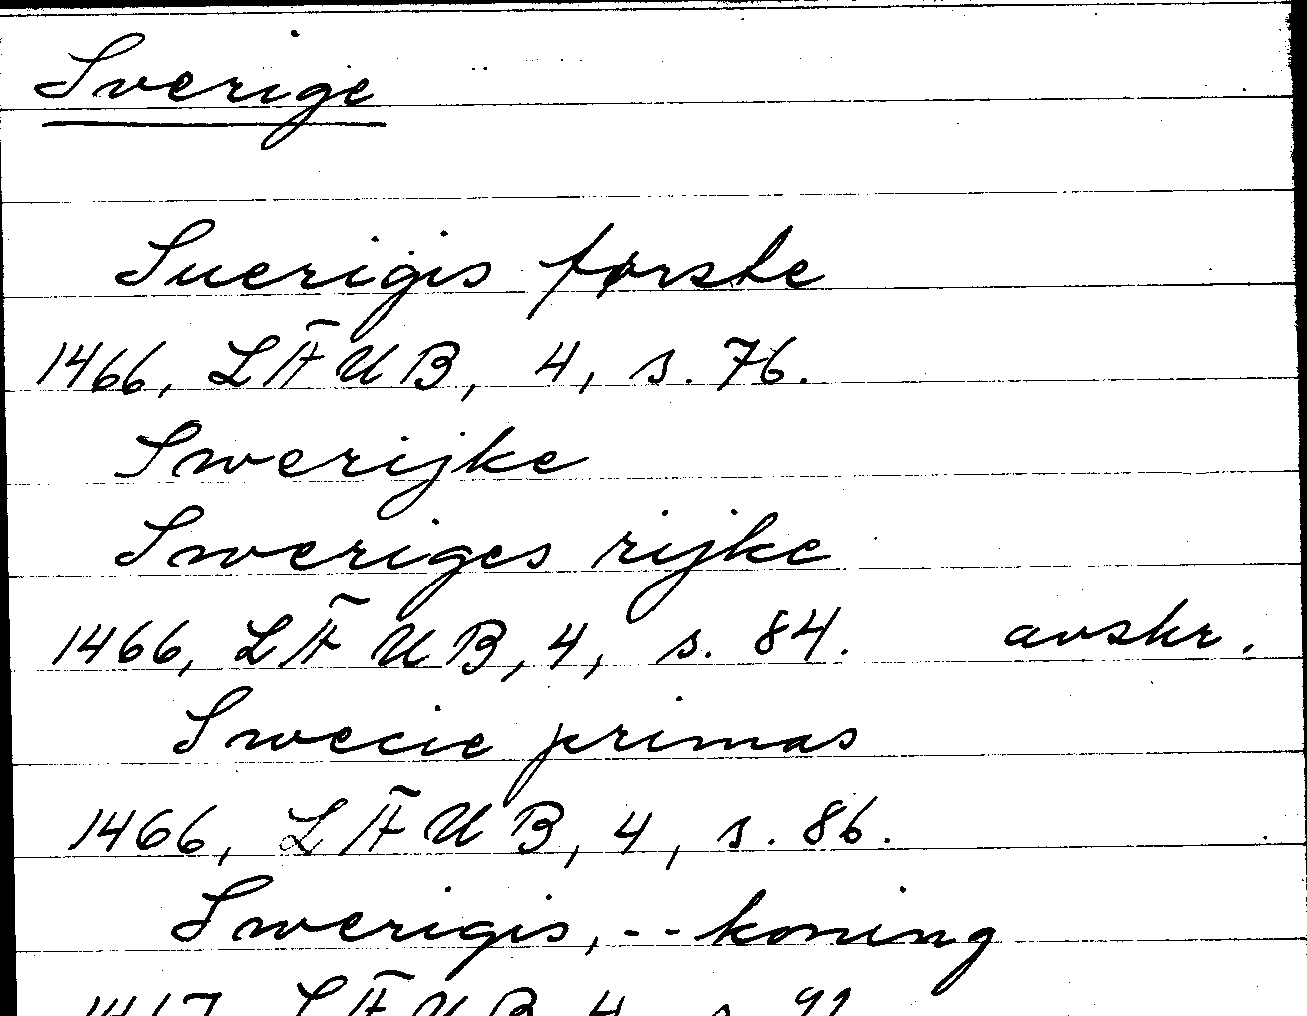 Sverige
Suerigis første
1466, LÄUB, 4, s. 76.
Swerijke
Sweriges rijke
1466, LÄUB, 4, s. 84. avskr.
Swecie primas
1466, LÄUB, 4, s. 86.
Swerigis, -- koning
LÄUB 4, s.